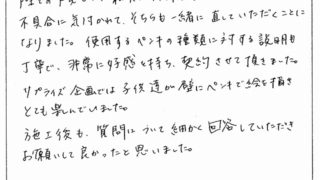 不具合に気付かれて、そちらも一緒に直していただくことに
なりました。使用するペンキの種類に対する説明も
丁寧で、非常に好感を持ち、契約させて頂きました。
リプライズ企画では子供達が壁にペンキで絵を描き
とても楽しんでいました。
施工後も、質問について細かく回答していただき
お願いして良かったと思いました。